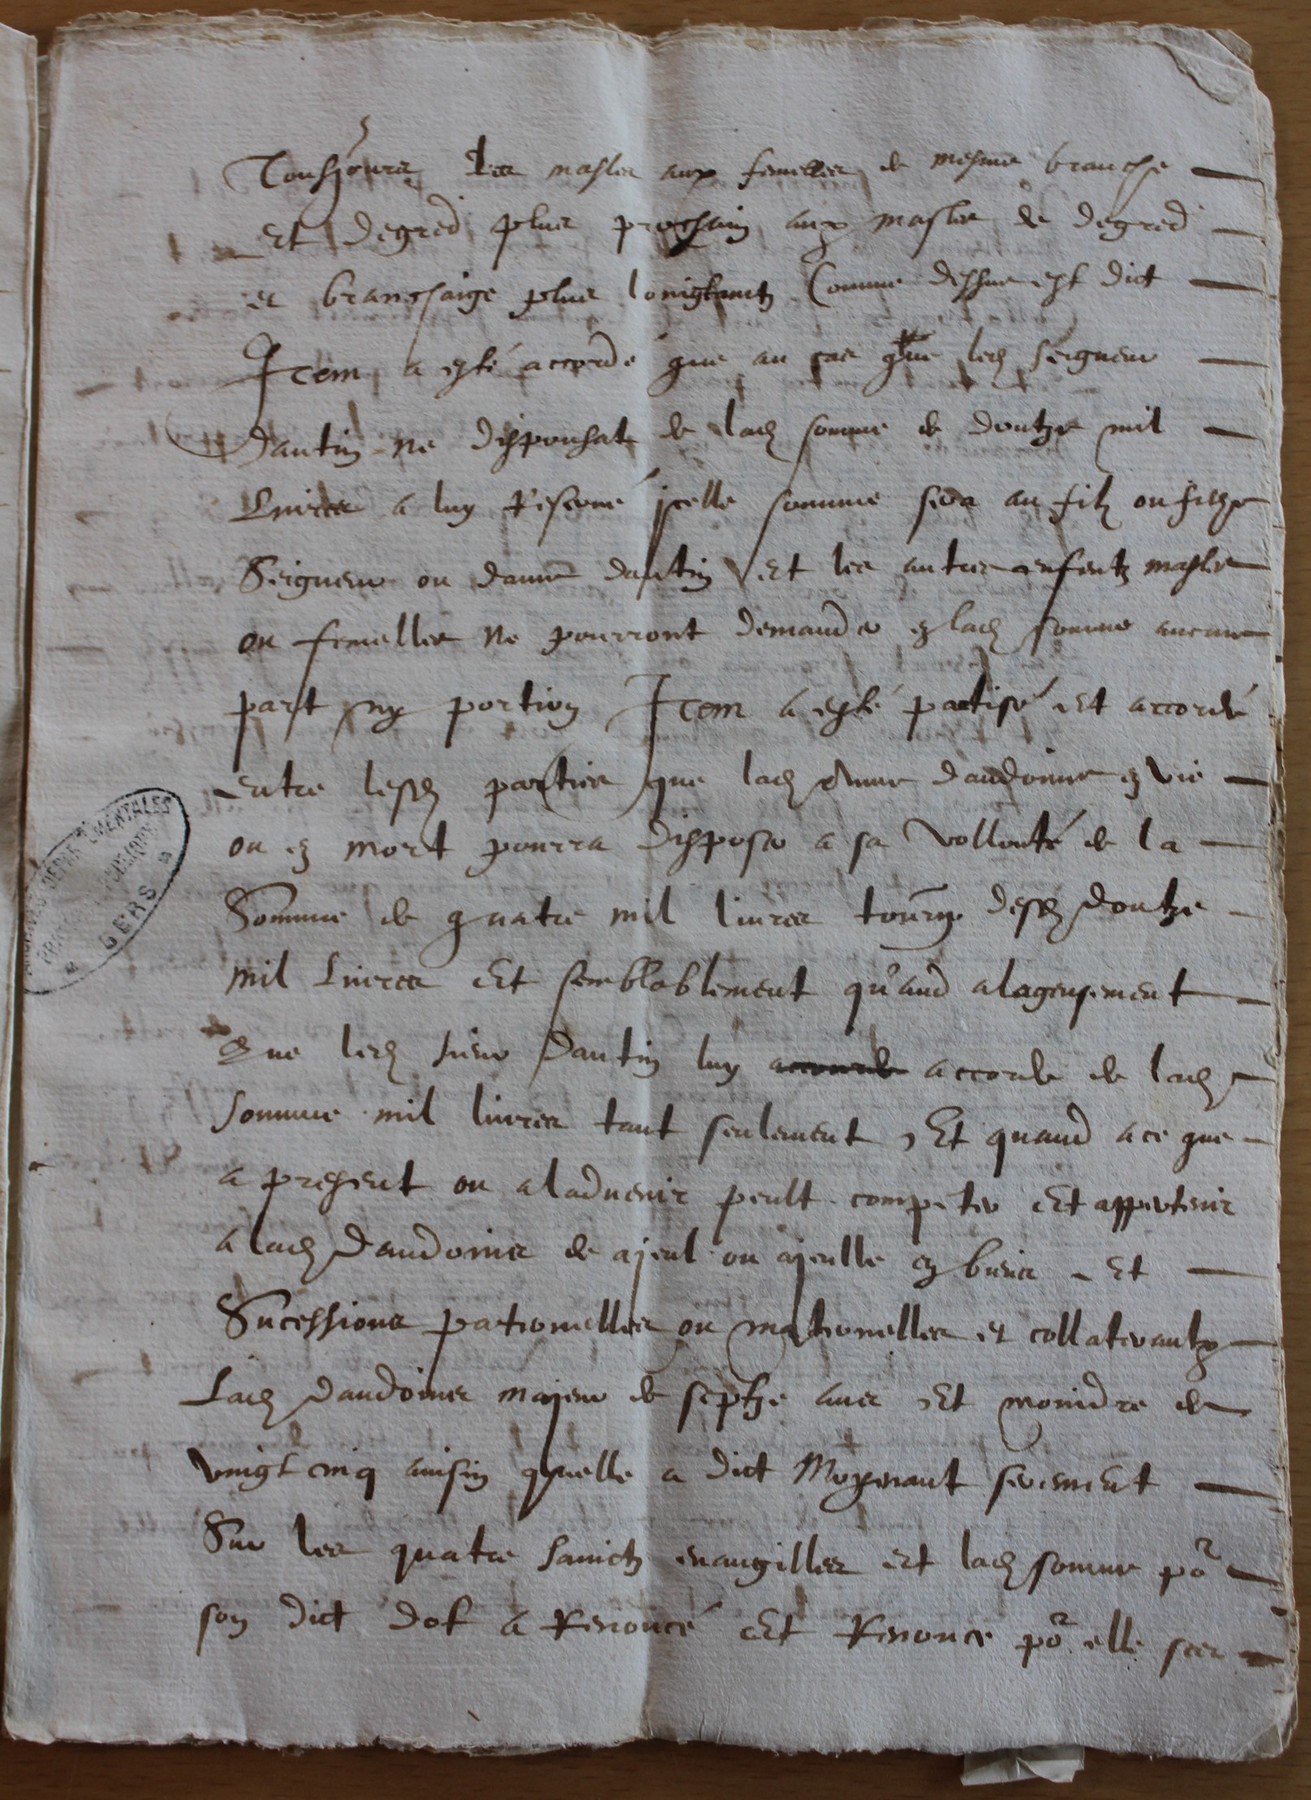 Tousjours les masles aux femelles de mesme branche
et degred plus prochain aux masles de degred
et branchaige plus loingtantz Comme dessus est dict
Item a esté accordé que au cas que led seigneur
dantin ne dispousat de lad somme de doutze mil
Livres a luy Reservé jcelle somme sera au filz ou filhe
Seigneur ou dame dantin et les autres enfentz masles
ou femelles Ne pourront demander en lad somme aucune
part ny portion Item a esté pactisé et accordé
entre lesd parties que lad Anne dandoins en vie
ou en mort pourra disposer a sa vollonté de la
Somme de quatre mil livres tourn desd doutze
mil Livres Et semblablement quand alagensement
Que led sieur dantin luy accorde de lad
somme mil livres tant seulement, Et quand a ce que
a present ou aladvenir peult competer Et appertenir
a lad dandoins de ajeul ou ajeulle en biens Et
Sucessions paternelles ou maternelles et collateraulx
Lad dandoins majeur de septze ans Et moindre de
vingt cinq ainsin quelle a dict Moyenant serement
Sur les quatre sainctz evangilles et lad somme por
son dict dot a Renoncé Et Renonce por elle ses
ARCHIVES DEPARTEMENTALES
GERS